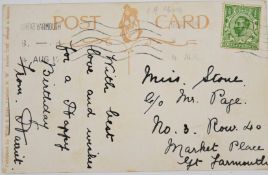 POST CARD
With best
love and wishes
for a Happy
Birthday
from
Miss. Stone.
C/o Mr. Page.
No. 3. Row. 40
Market Place
Gt Yarmouth